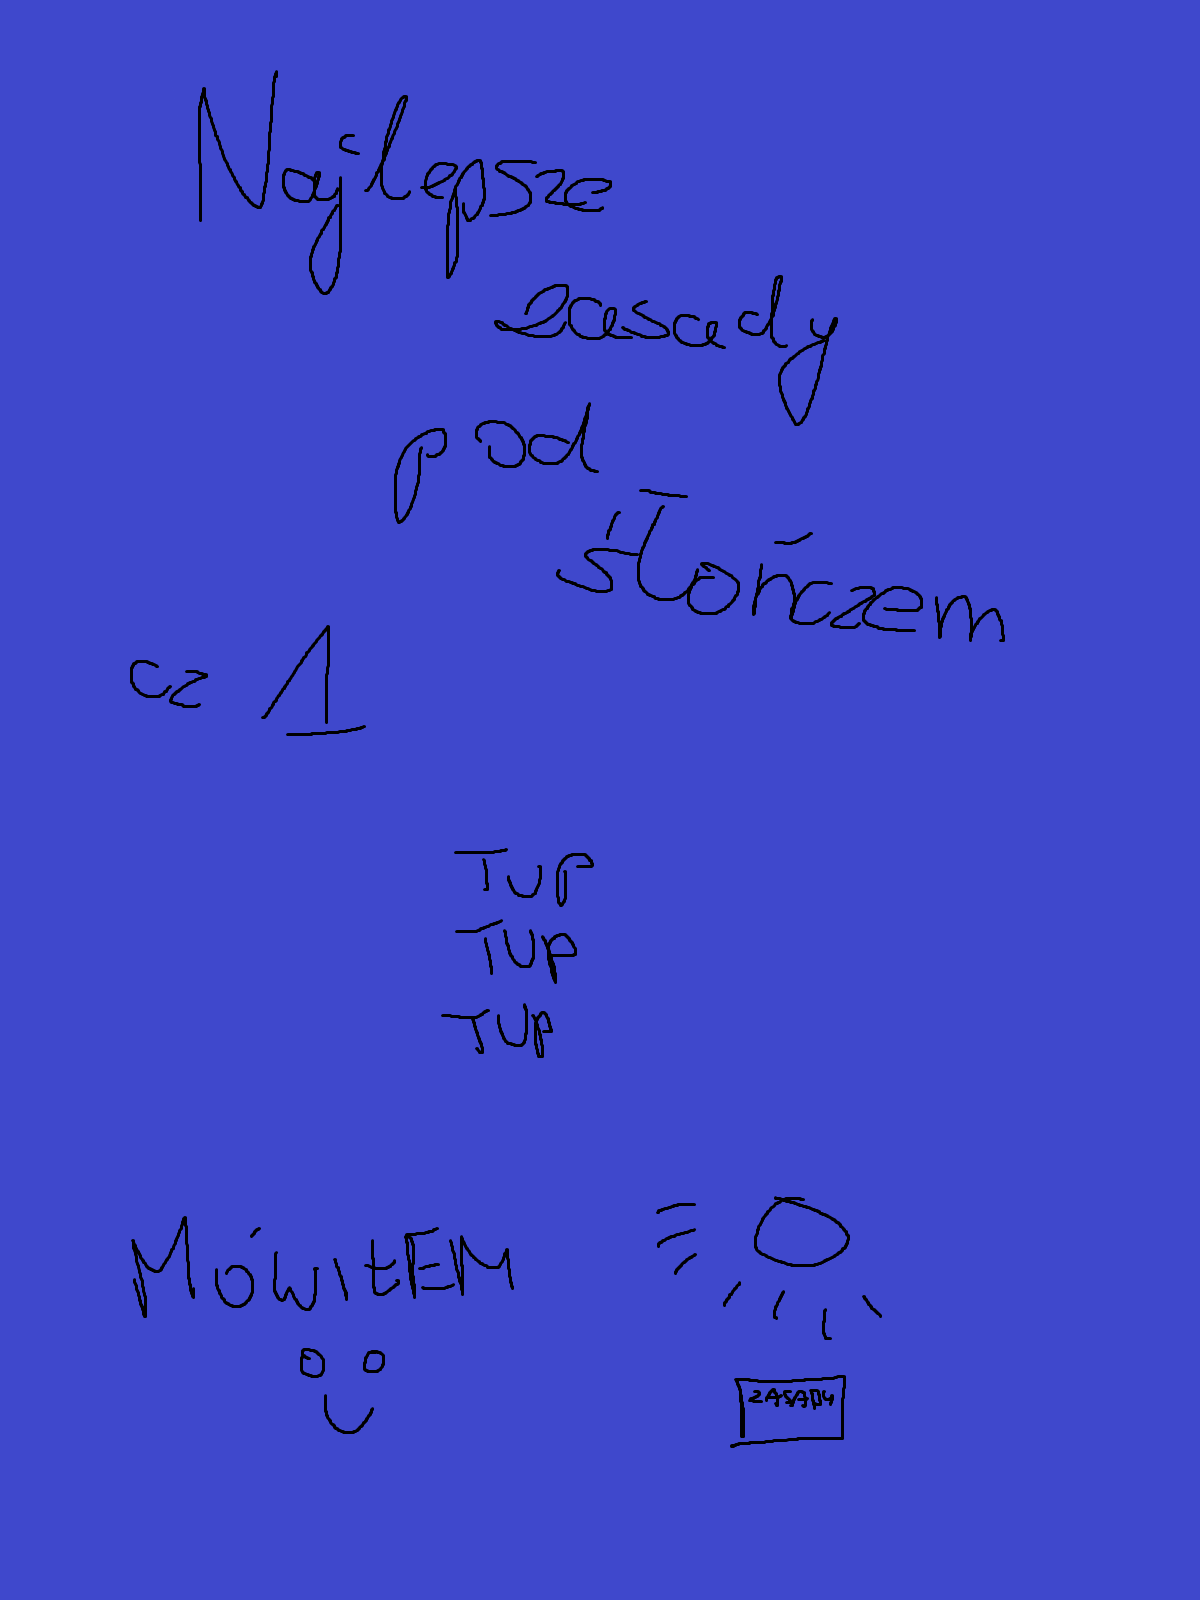 Najlepsze
zasady
pod
słończem
cz 1
TUP
TUP
TUP
MÓWIŁEM
ZASADY